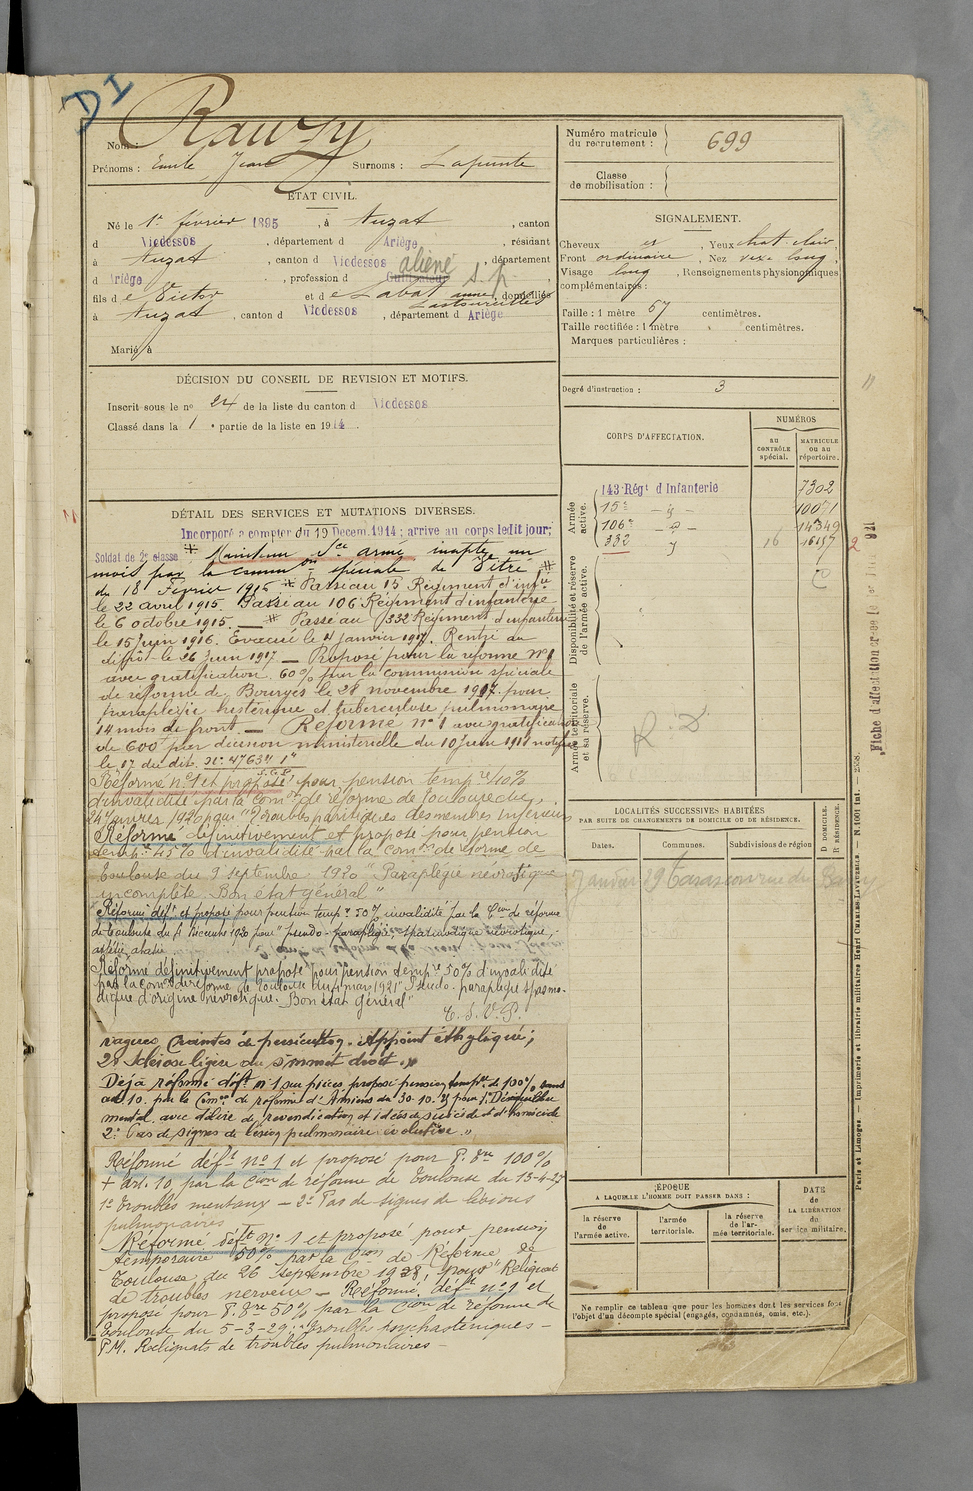 DI
Rauzy
Nom :
Prénoms : Emile Jean Surnoms : Lapeinte
ÉTAT CIVIL.
Né le 1er février 1895, à Auzat, canton
d Vicdessos, département d Ariège, résidant
à Auzat, canton d Vicdessos, département
d Ariège, profession d Cultivateur aliéné s. p.
fils de Victor et de Labat anne, domiciliés
Lastourelles
à Auzat, canton d Vicdessos, département d Ariège
Marié à
DÉCISION DU CONSEIL DE REVISION ET MOTIFS.
Inscrit sous le no 24 de la liste du canton d Vicdessos
Classé dans la 1e partie de la liste en 1914.
DÉTAIL DES SERVICES ET MUTATIONS DIVERSES.
Incorporé a compter du 19 Decem. 1914 ; arrive au corps ledit jour;
Soldat de 2e classe Maintenu Sce armé inapte un
mois par la commion spéciale de Vitré
du 18 Février 1915 Passé au 15 Régiment d'infie
le 22 avril 1915. Passé au 106 Régiment d'infanterie
le 6 octobre 1915. — Passé au 332 Régiment d'infanterie
le 15 Juin 1916. Evacué le 4 Janvier 1917. Rentré au
dépôt le 26 Juin 1917 — Proposé pour la réforme no 1
avec gratification 60% par la commission spéciale
de réforme de Bourges le 28 novembre 1917 pour
paraplégie hystérique et tuberculose pulmonaire
14 mois de front. — Réformé no 1 avec gratification
de 600f par décision ministérielle du 10 Juin 1918 notifiée
le 17 du dit. No 47634 1"
Réformé no 1 et proposé pour pension tempre 40%
d'invalidité par la Comon de réforme de Toulouse du
24 janvier 1920 pour "Troubles parétiques des membres inférieurs
Réformé définitivement et proposé pour pension
tempre 45% d'invalidité par la comon de réforme de
Toulouse du 9 septembre 1920 Paraplégie névrotique
incomplète. Bon état général"
Réformé déft et proposé pour pension tempre 50% invalidité par la Con de réforme
de Toulouse du 4 Décembre 1920 pour "pseudo-paraplégie, spasmodique névrotique,
Réformé définitivement proposé pour pension tempre 50% d'invalidité
par la comon de réforme de Toulouse du 4 mars 1921 "Pseudo-paraplégie spasmo-
dique d'origine névrotique. Bon état général"
T. S. V. P.
vagues craintes de persécution. Appoint éthylique ;
2o Sclérose légère du sommet droit."
Déjà réformé déft no 1 sur pièces proposé pension tempre de 100%
art 10. par la Comon de réforme d'Amiens du 30.10.25 pour 1o Déséquilibre
mental avec délire de revendication et idées de suicide et d'homicide
2o Pas de signes de lésion pulmonaire évolutive."
Réformé déft no 1 et proposé pour P. tre 100%
+ art. 10, par la Cion de réforme de Toulouse du 15-4-27
1o troubles mentaux — 2o Pas de signes de lésions
pulmonaires
Réformé déft no 1 et proposé pour pension
temporaire 50% par la Cion de Réforme de
Toulouse du 26 septembre 1928, pour "Reliquat
de troubles nerveux — Réformé déft no 1 et
proposé pour P. tre 50% par la Cion de réforme de
Toulouse du 5-3-29 : troubles psychasténiques —
P.M. Reliquats de troubles pulmonaires —
Numéro matricule
du recrutement : 699
Classe
de mobilisation :
SIGNALEMENT.
Cheveux , Yeux chat. clair,
Front ordinaire, Nez vexe long,
Visage long, Renseignements physionomiques
complémentaires :
Taille : 1 mètre 67 centimètres.
Taille rectifiée : 1 mètre centimètres.
Marques particulières :
Degré d'instruction : 3
CORPS D'AFFECTATION.
NUMÉROS
au
CONTRÔLE
spécial.
MATRICULE
ou au
répertoire.
Armée
active.
143 Régt d'Infanterie 7302
15e — d° — 10071
106e — d° — 14349
332 d° 16 16157
2
Disponibilité et réserve
de l'armée active.
Armée territoriale
et sa réserve.
R. D
LOCALITÉS SUCCESSIVES HABITÉES
PAR SUITE DE CHANGEMENTS DE DOMICILE OU DE RÉSIDENCE.
Dates. Communes. Subdivisions de région
D DOMICILE.
R RÉSIDENCE.
Janvier 29 Tarascon rue du Barry
ÉPOQUE
A LAQUELLE L'HOMME DOIT PASSER DANS :
la réserve
de
l'armée active.
l'armée
territoriale.
la réserve
de l'ar-
mée territoriale.
DATE
de
LA LIBÉRATION
du
service militaire.
Ne remplir ce tableau que pour les hommes dont les services font
l'objet d'un décompte spécial (engagés, condamnés, omis, etc.).
Paris et Limoges. — Imprimerie et librairie militaires Henri CHARLES-LAVAUZELLE. — N. 1001 int. — 2558.
Fiche d'affectation créée le 1er